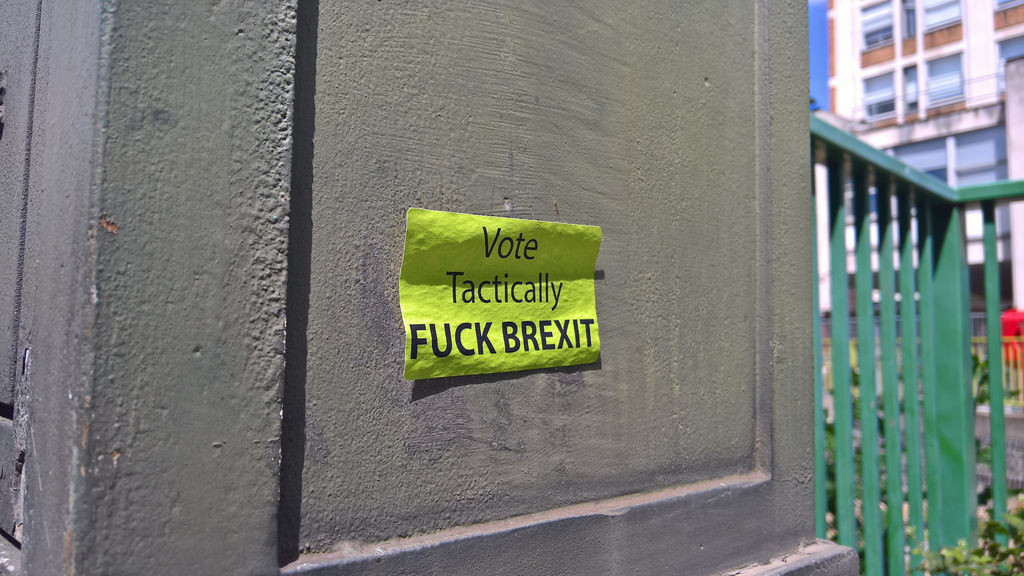 Vote
Tactically
FUCK BREXIT